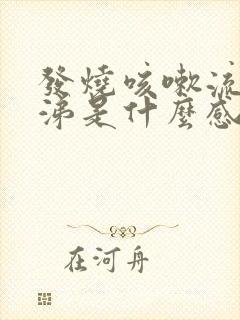 發燒咳嗽流
涕是什麼感
在河舟